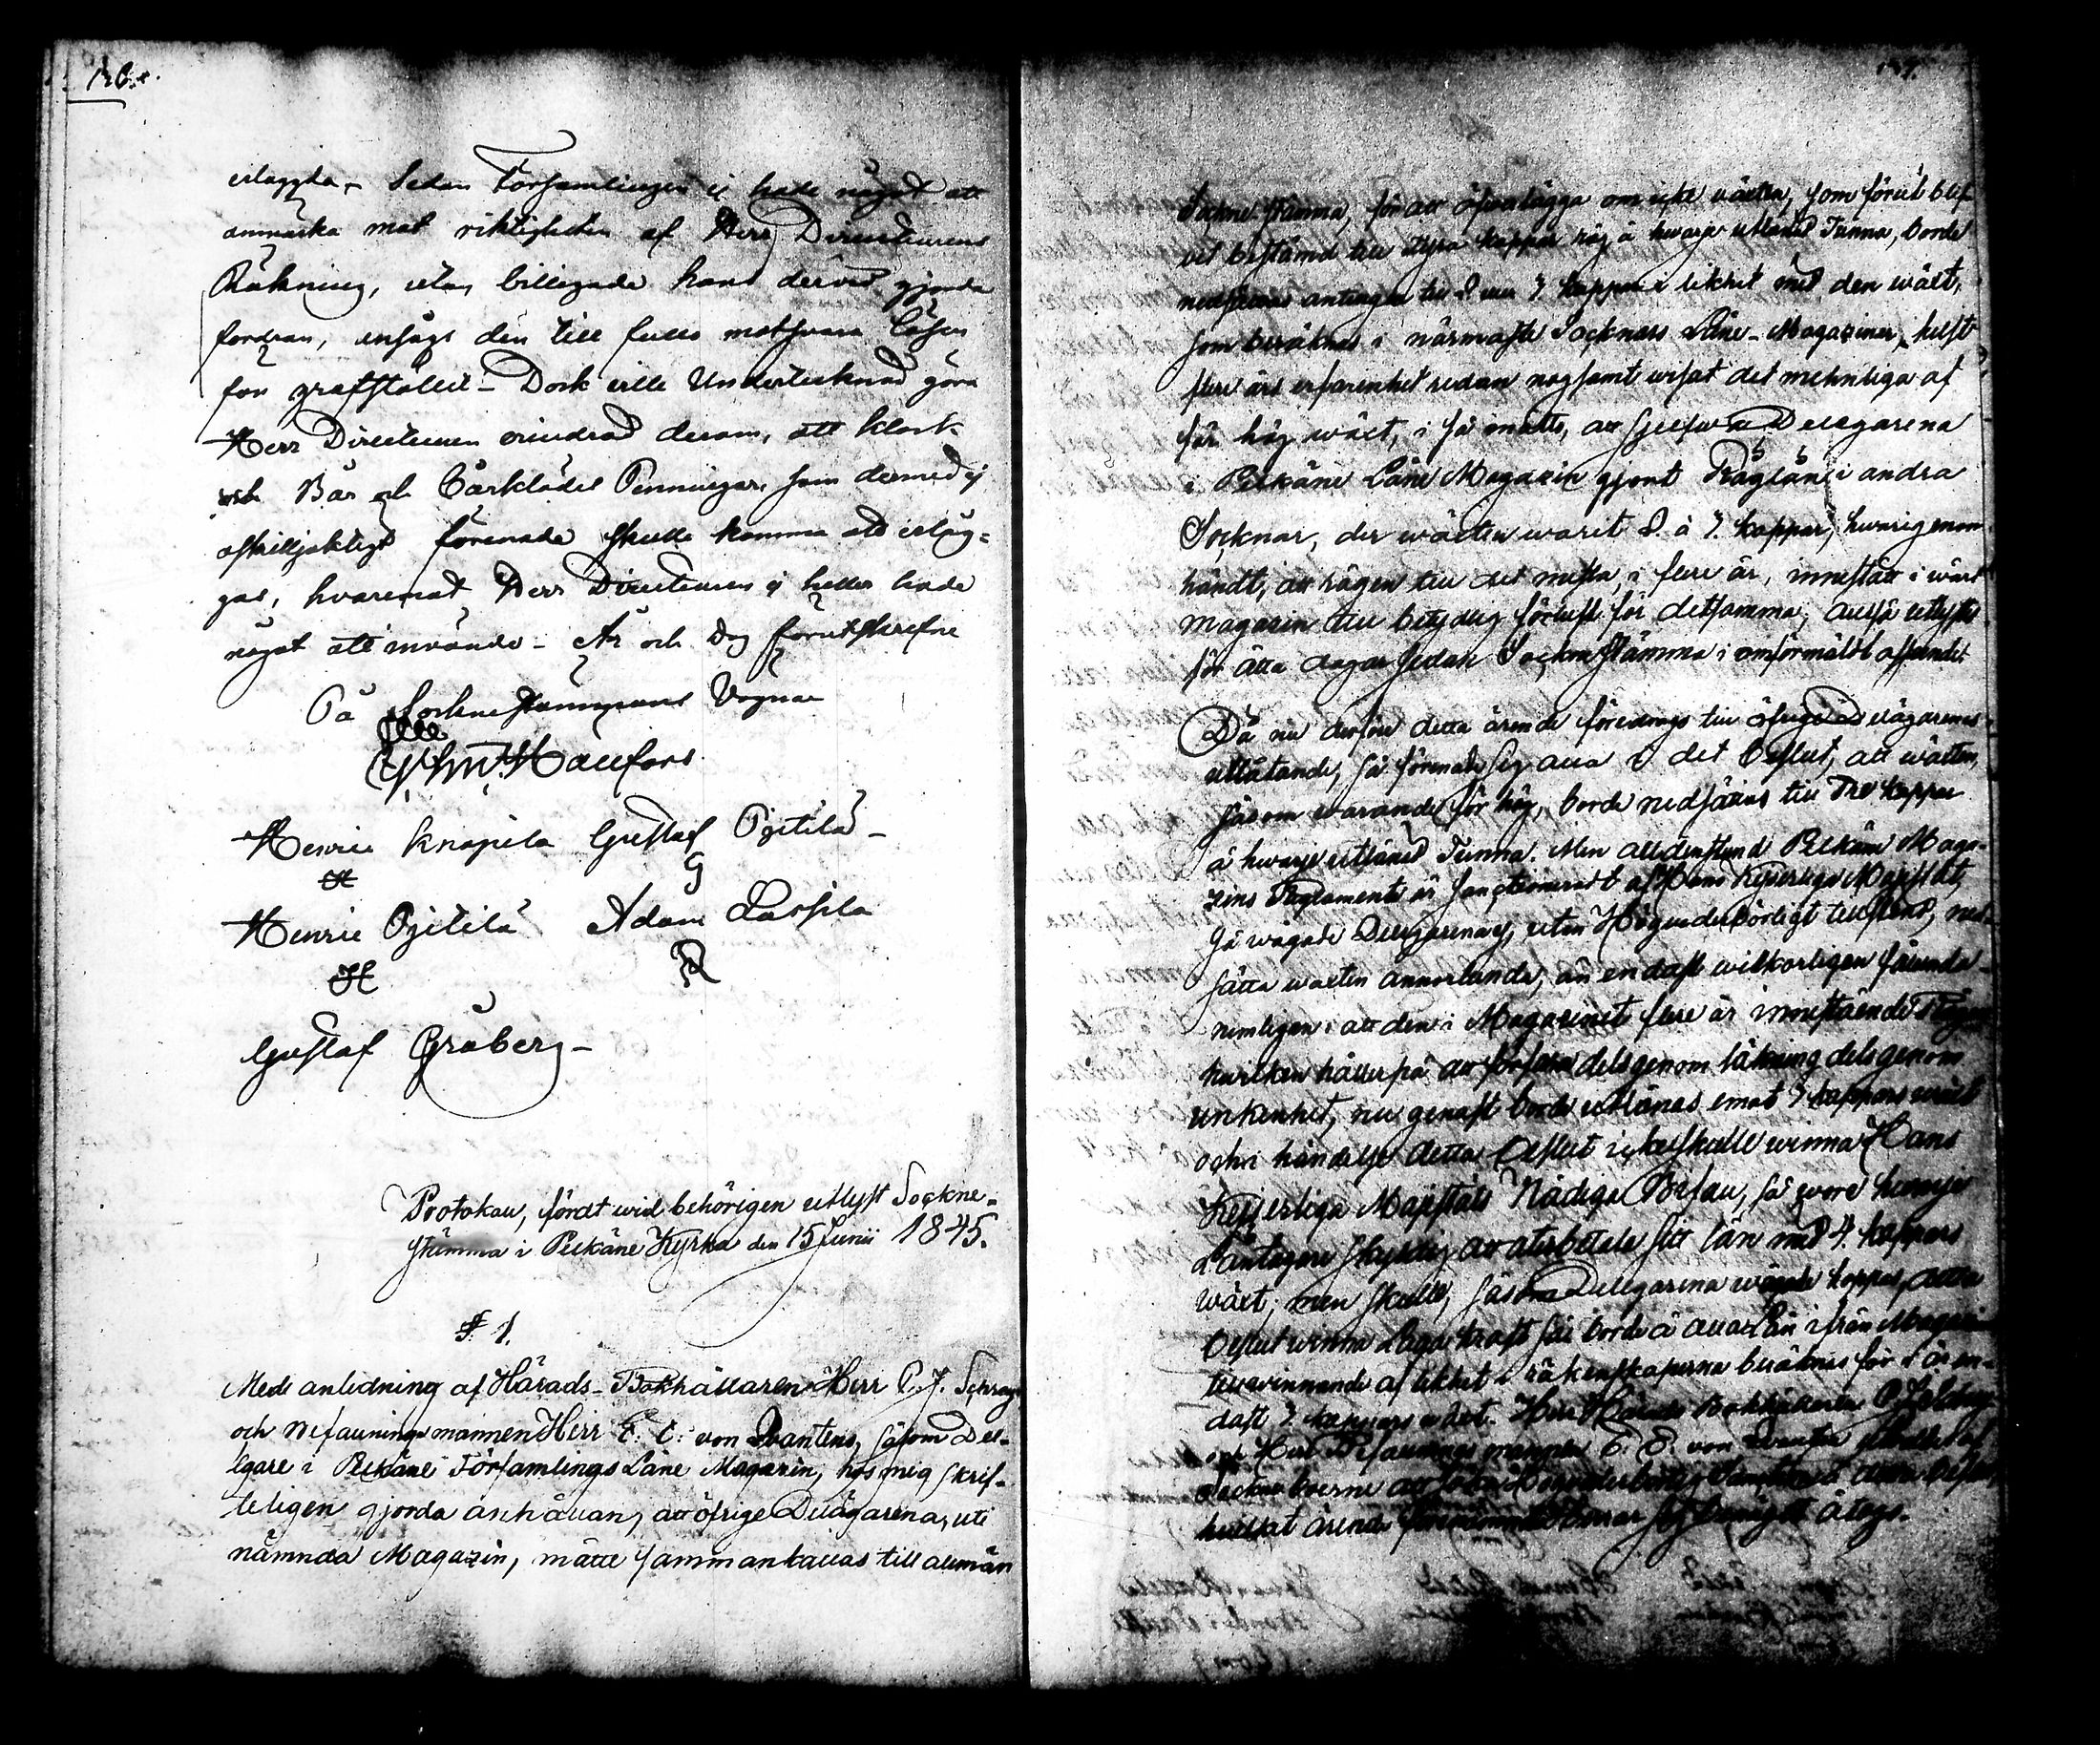 126.
erlaggda, Sedan Församlingen ej hade något att
anmärka mot riktigheten af Herr Directeurens
Räkning, utan billigade hans dervid gjorda
fordran, ansågs den till fullo motsvara Lösen
för grafstället - Dock ville Undertecknad göra
Herr Directeuren erindrad derom, att Klock
och Bår och Bårklädes Penningar som dermed ej
oskiljaktigt förenade skulle komma att erläg-
gas, hvaremot Herr Directeuren ej heller hade
något att invända - År och Dag förutskrefne
På Sockne stämmans Vägnar
Hällfors
Henric Knapila Gustaf Pytilä -
H G
Henric Pytilä Adam Lassila
H
Gustaf Gråberg -
Protokoll, fördt wid behörigen utlyst Sockne-
stämma i Pelkäne Kyrka den 15 Junii 1845.
§ 1.
Med anledning af Härads-Bokhållaren Herr P. J.
och Befallningsmannen Herr E. E. von Qvanten, såsom Del-
egare i Pelkäne Församlings Låne Magazin, hos mig skrif-
teligen gjorda anhållan, att öfrige Delägarena, uti
nämnda Magazin, måtte sammankallas till allmän
Sockne stämma, för att öfverlägga om icke växten, som förut blif-
vit bestämd till fyra kappar råg à hwarje utlånad Tunna, borde
nedsättas antingen till 2 eller 3 kappar i likhet med den wäxt,
som beräknas i närmaste Socknars Låne-Magaziner, helst
flere års erfarenhet redan nogsamt wisat det mehnliga af
för hög wäxt, i så måtto, att sjelfwa Delegarena
i Pelkäne Låne Magazin gjort Råglån i andra
Socknar, der wäxten warit 2 à 3 kappar, hwarigenom
händt, att rågen till det mesta, i flere år, innestått i wårt
magasin till betydlig förlust för detsamma, altså utlystes
för åtta dagar sedan Sockne Stämma i omförmäldt afseende.
Då nu derföre detta ärende föredrogs till öfrige Delägarenes
utlåtande, så förenade sig alla i det beslut, att wäxten,
såsom warande för hög, borde nedsättas till Tre kappar
à hwarje utlånad Tunna. Men alldenstund Pelkäne Maga-
zins Reglemente är sanctioneradt af Hans Kejserliga Majestät,
så wågade Delegarena ej, utan Högwederbörligt tillstånd, ned-
sätta wäxten annorlunda, än endast wilkorligen sålunda
nemligen: att den i Magazinet flere år innestående Rågen
hwilken håller på att förfara dels genom läkning dels genom
unkenhet, nu genast borde utlånas emot 3 kappars wäxt
och i händelse detta Beslut icke skulle winna Hans
Kejserliga Majestäts Nådiga Bifall, så wore hwarje
Låntagare skyldig att återbetala sitt lån med 4. kappars
wäxt; men skulle, såsom Delegarena wågade hoppas, detta
Beslut winna Laga kraft så borde å alla Lån ifrån Magazin
till winnande af likhet i räkenskaperna beräknas för i år en-
dast 3 kappars wäxt. Herr Härads Bokhållaren
och Herr Befallningsmannen E. E. von Qvanten